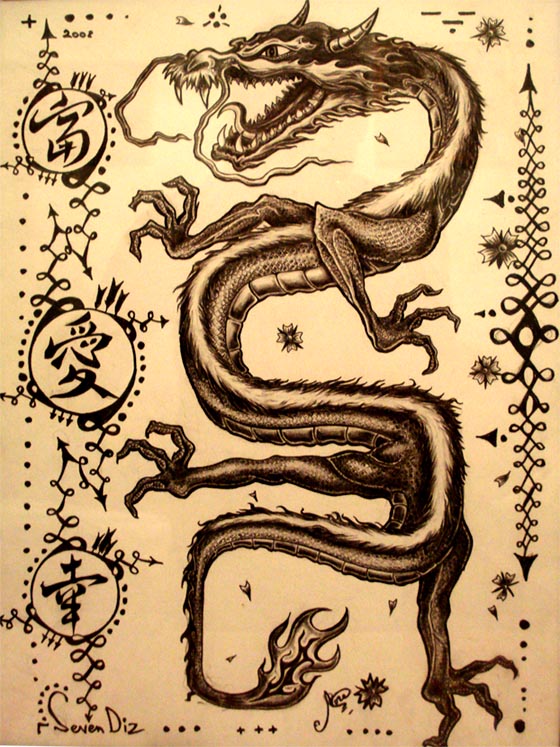 2008
富
愛
幸
SevenDiz